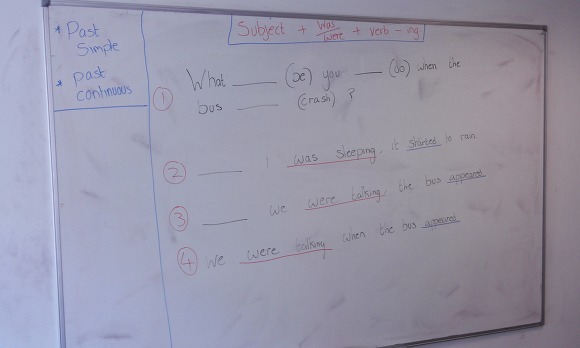 * Past
Simple
* past
continuous
Subject + was/were + verb - ing
① What ____ (be) you ____ (do) when the
bus ____ (crash) ?
② ____ I was sleeping, it started to rain.
③ ____ we were talking, the bus appeared
④ We were talking when the bus appeared